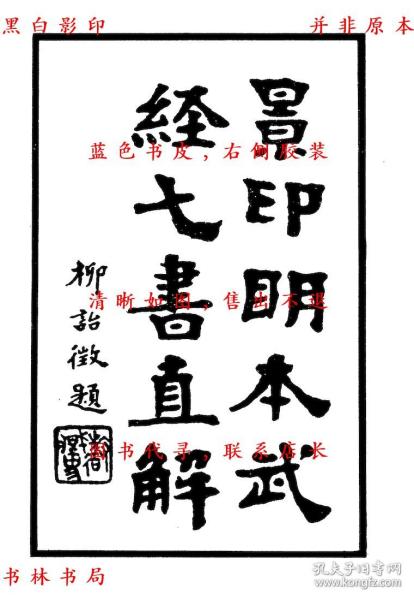 黑白影印
并非原本
景印明本武
経七書直解
柳詒徵題
蓝色书皮,右侧胶装
清晰如图,售出不退
图书代寻,联系店长
书林书局
孔夫子旧书网